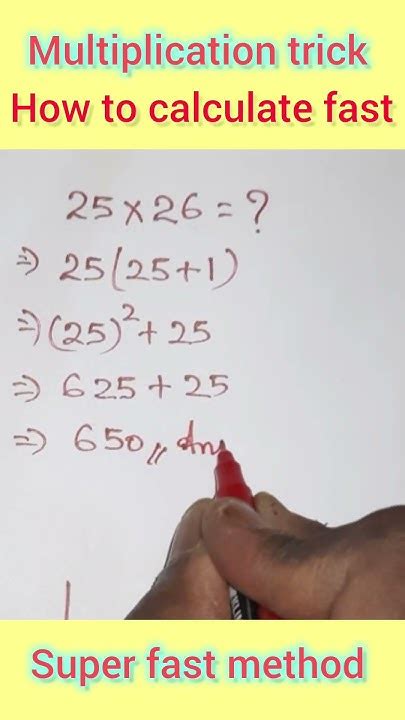 Multiplication trick
How to calculate fast
25×26=?
⇒ 25(25+1)
⇒ (25)²+25
⇒ 625+25
⇒ 650,, Ans
Super fast method